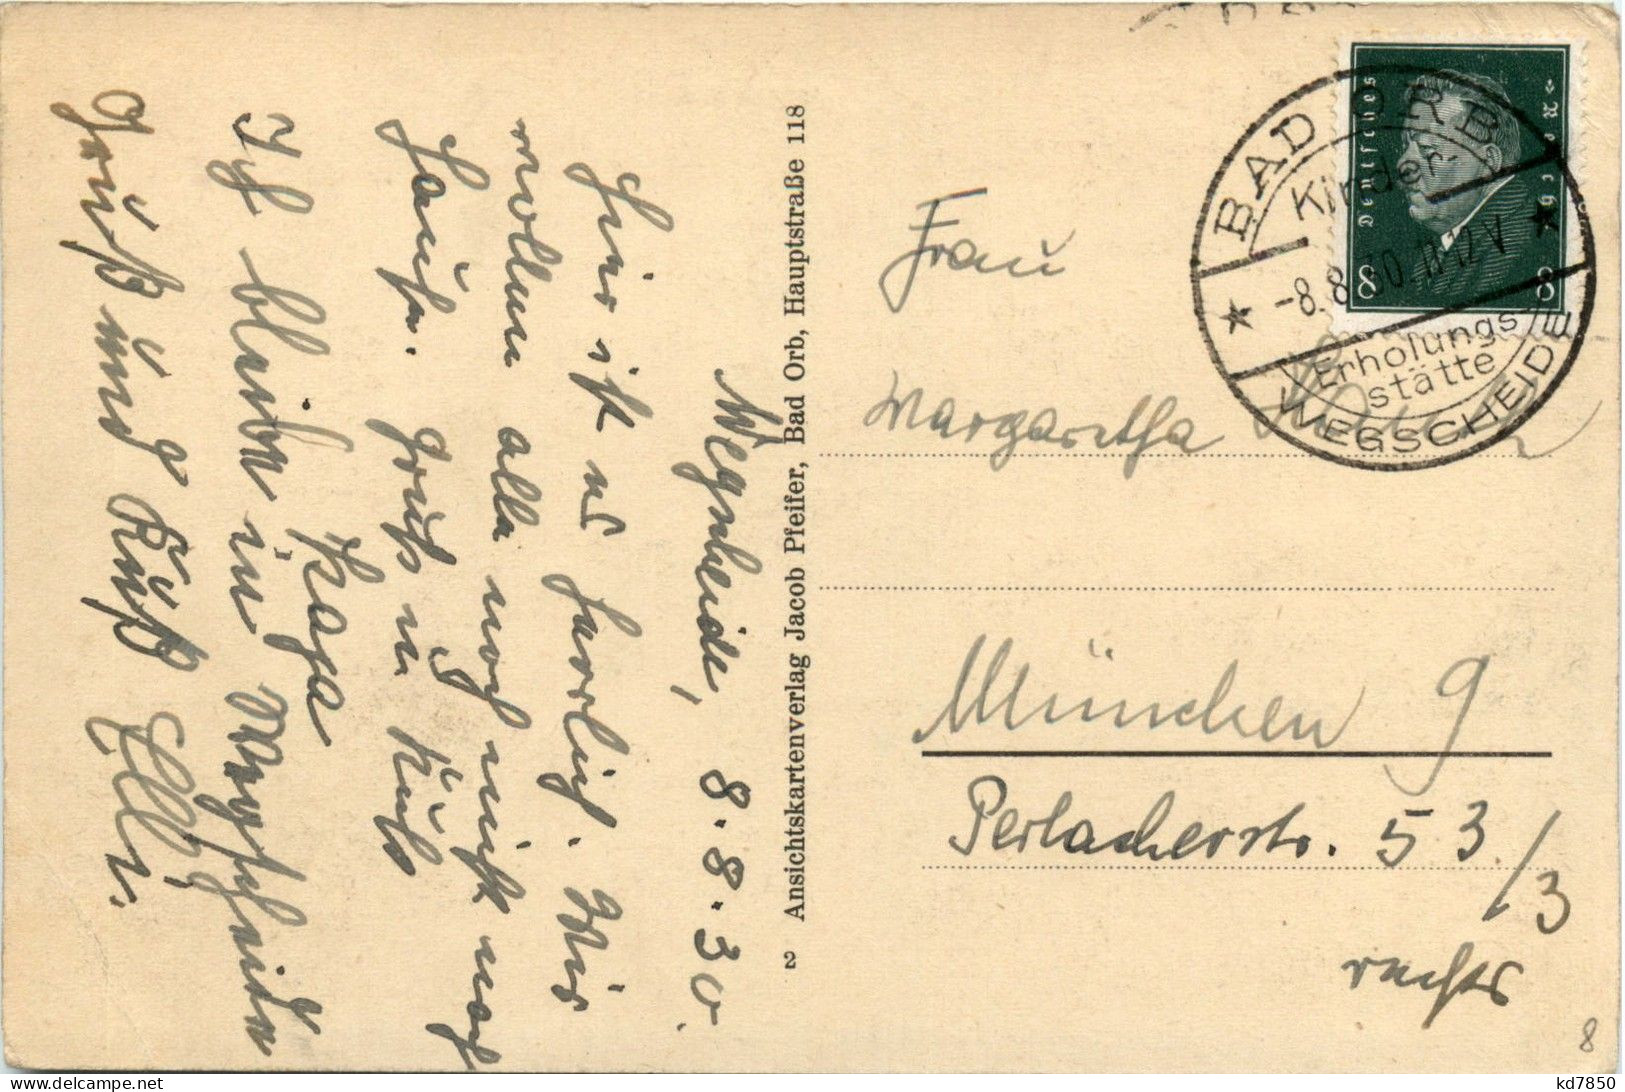 Wegscheide, 8.8.30.
Hier ist es herrlich. Wir
wollen alle noch nicht nach
Hause. Gruß u Kuß
Ich bleibe in Wegscheide
Gruß und Kuß Elli.
2 Ansichtskartenverlag Jacob Pfeifer, Bad Orb, Hauptstraße 118
Deutsches Reich
8 8
BAD ORB
Kinder-
-8.8.30.11-12V
Erholungs-
stätte
WEGSCHEIDE
Frau
Margaretha
München 9
Perlacherstr. 53/3
rechts
8
kd7850